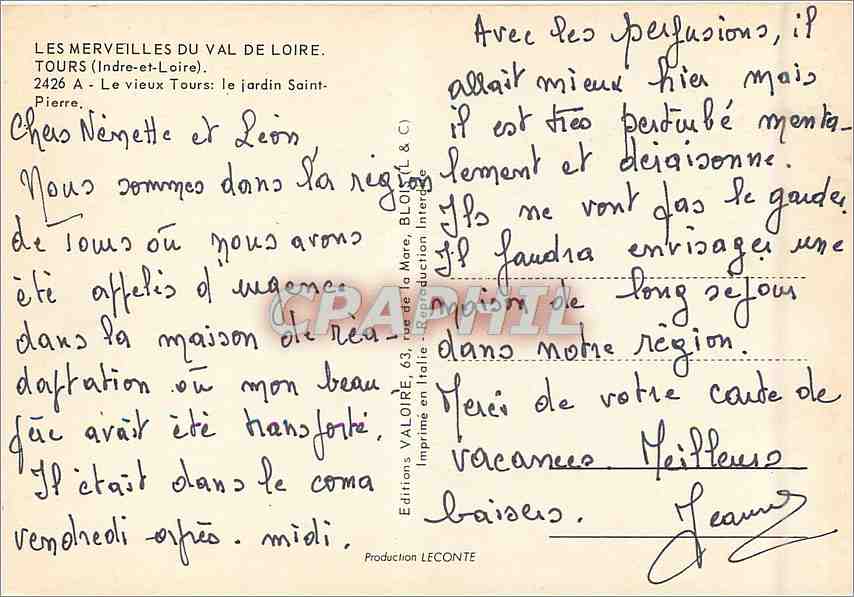 LES MERVEILLES DU VAL DE LOIRE.
TOURS (Indre-et-Loire).
2426 A - Le vieux Tours: le jardin Saint-
Pierre.
Chers Némette et Léon,
Nous sommes dans la région
de Tours où nous avons
été appelés d'urgence
dans la maison de réa-
daptation où mon beau
père avait été transporté.
Il était dans le coma
vendredi après-midi.
Avec les perfusions, il
allait mieux hier mais
il est très perturbé menta-
lement et déraisonne.
Ils ne vont pas le garder.
Il faudra envisager une
maison de long séjour
dans notre région.
Merci de votre carte de
vacances. Meilleurs
baisers. Jeanne
Editions VALOIRE, 63, rue de la Mare, BLOIS (L & C)
Imprimé en Italie - Reproduction Interdite
Production LECONTE
CPAPHIL